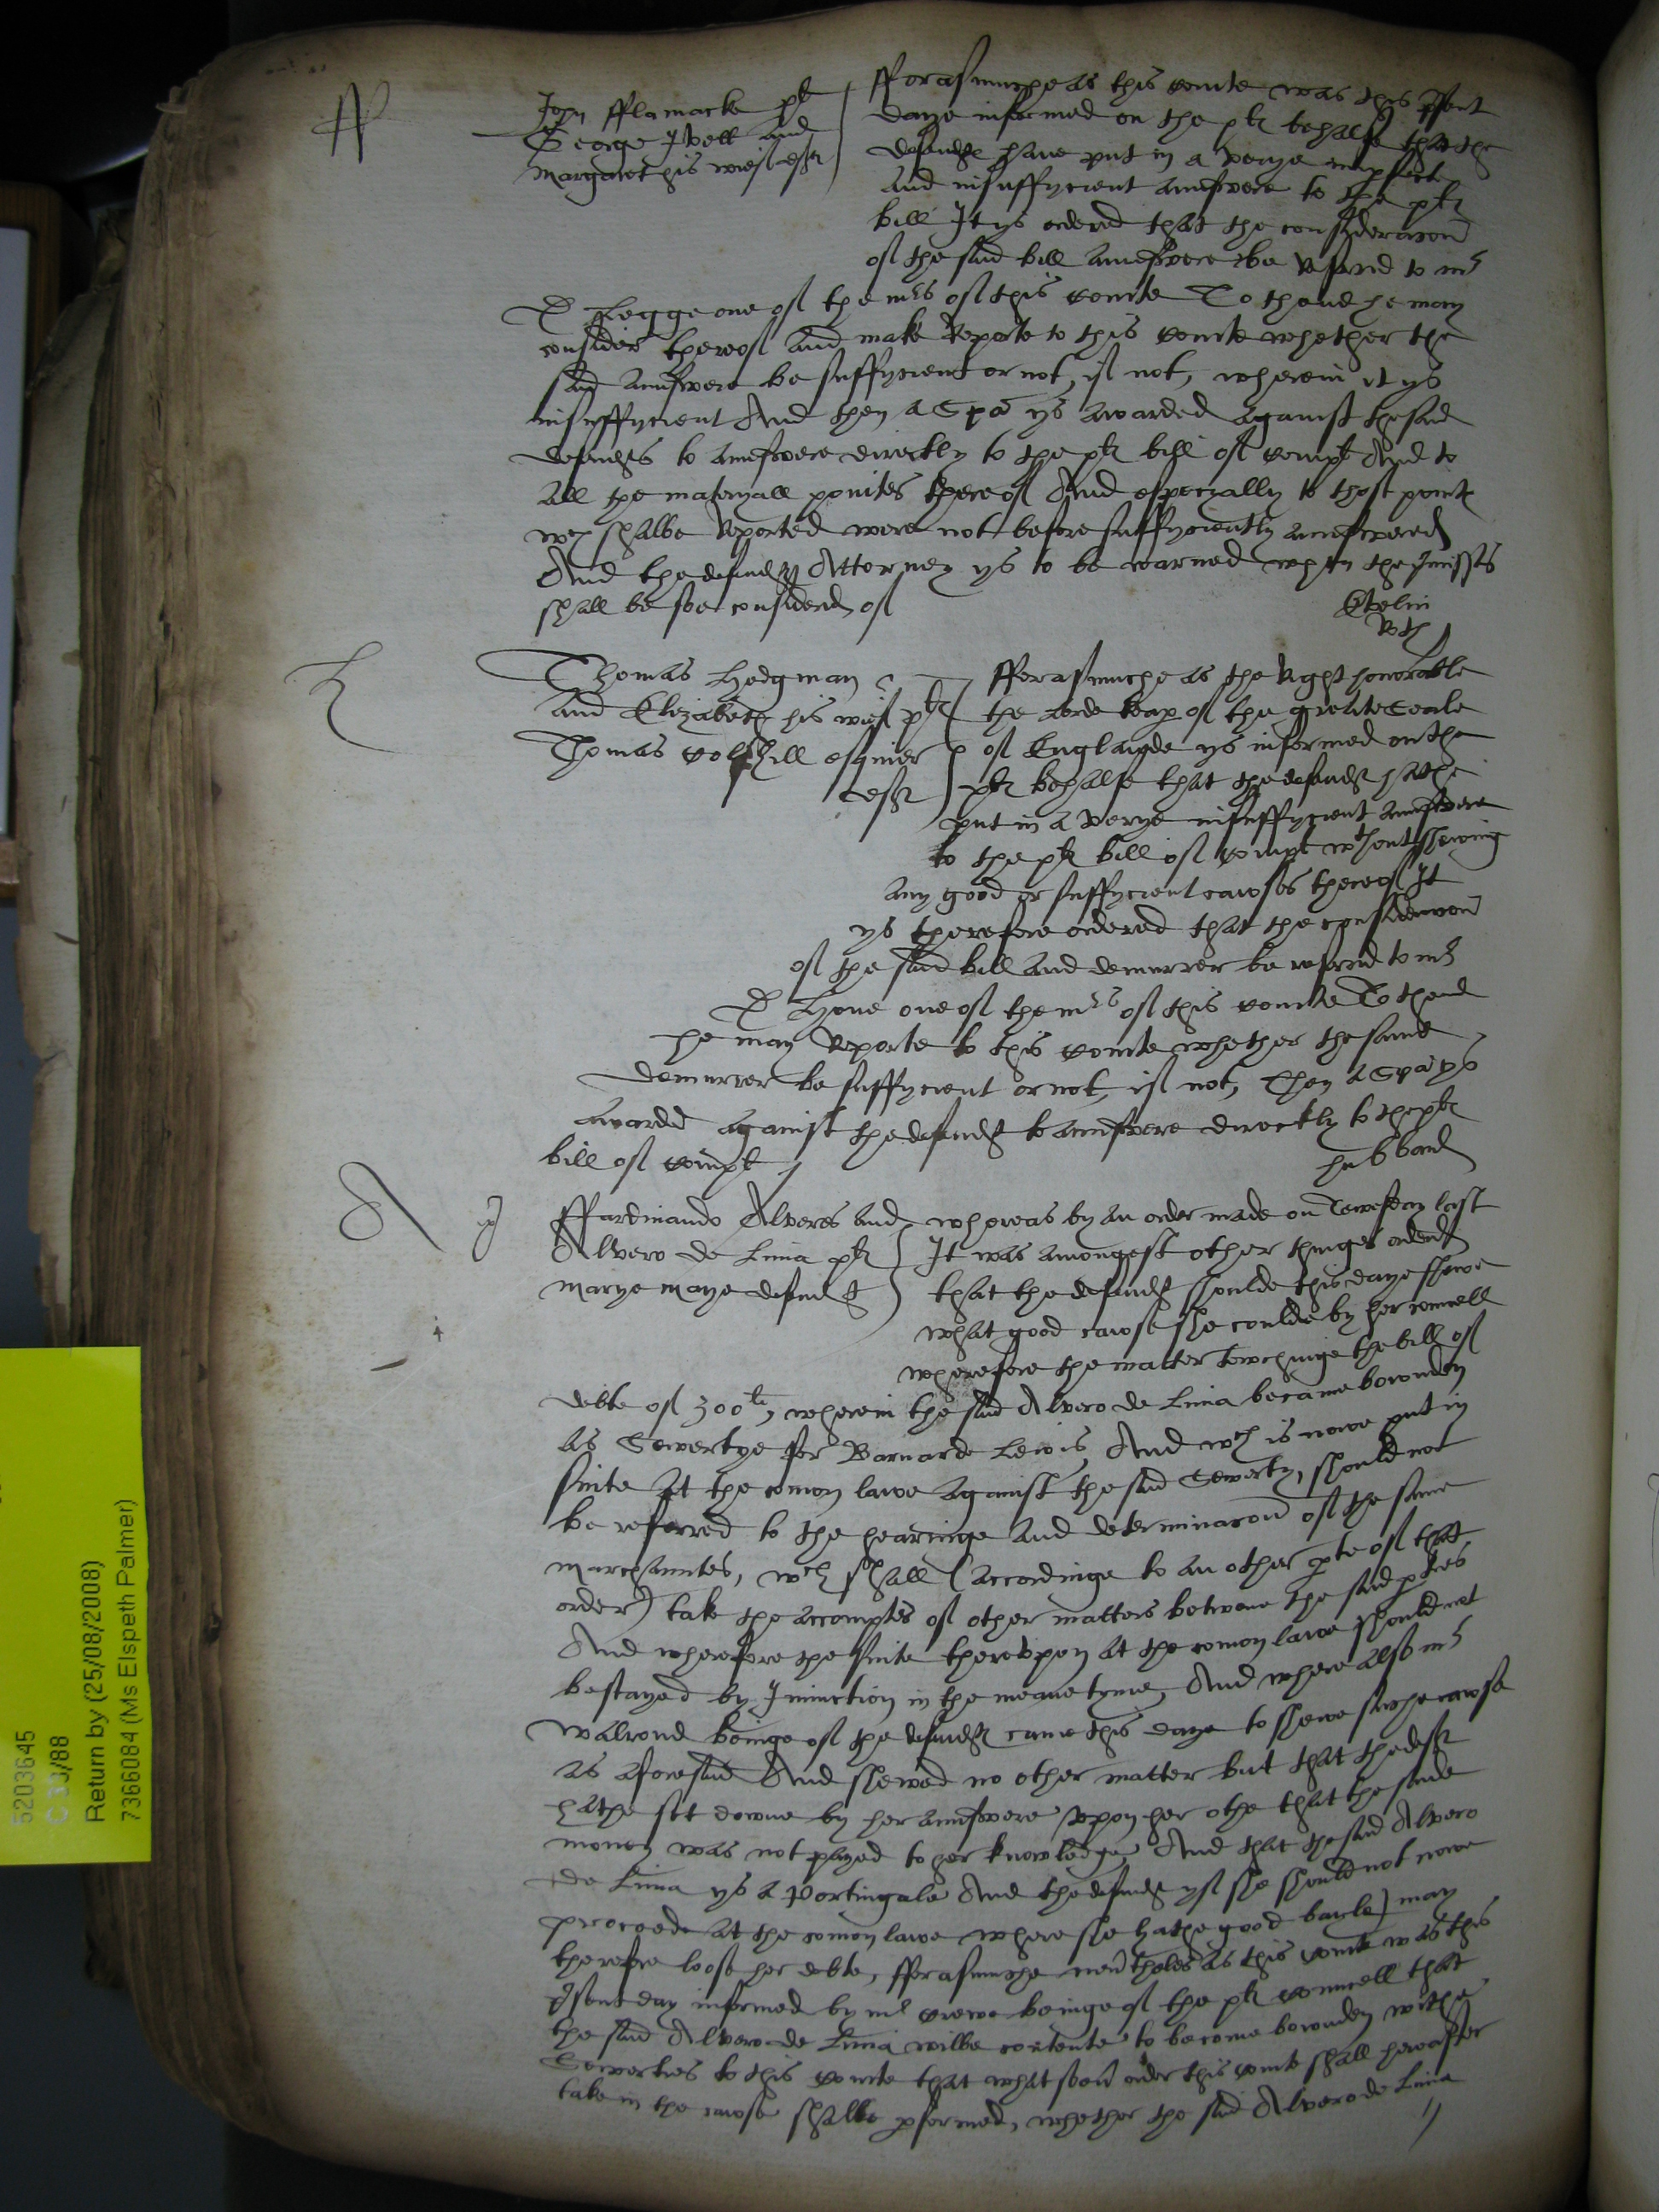 ff
John fflamacke pl
George Ivell and
Margaret his wief deft
fforasmuche as this Courte was this p̱sent
daye informed on the pl behalfe that the
defendt have put in a verye imperfecte
and insuffycient aunswere to the pl
bill It ys ordered that the consideracon
of the said bill aunswere be referred to mr
D Legge one of the mrs of this Courte To thende he may
consider thereof and make reporte to this Courte whether the
said aunswere be suffycient or not, if not, wherein it ys
insuffycient And then a Spa ys awarded against the said
defendts to aunswere directly to the pl bill of Compt And to
all the materyall pointes thereof And especyally to those pointes
wch shalbe reported were not before suffycientlye aunswered
And the defendts Attorney ys to be warned when the p̱misses
shall be soe considered of
Evelin
H
Thomas Hodgman
and Elizabeth his wief pl
Thomas Colshill esquier
deft
fforasmuche as the right honorable
the Lorde keap̱ of the greate Seale
of Englande ys informed on the
pl behalfe that the defendt hathe
put in a verye insuffycient aunswere
to the pl bill of Compt wthout shewing
any good or suffycient cawses thereof It
ys therefore ordered that the consideracon
of the said bill and demurrer be referred to mr
D Hone one of the mrs of this Courte To thend
he may reporte to this Courte whether the same
demurrer be suffycient or not, if not, Then a Spa ys
awarded against the defendt to aunswere directly to the pl
bill of Compt
hubbard
A
ffardinando Alveres and
Alvero de Lima pl
Marye Maye defendt
whereas by an order made on Tewesday last
It was amongest other thinges ordered
that the defendt shoulde this daye shewe
what good cawse she coulde by her councell
wherefore the matter towchinge the bill of
debte of 300li, wherein the said Alvero de Lima became bownden
as Sewertye for Barnarde Lewis, And wch is nowe put in
suite at the comon lawe against the said Sewerty, should not
be referred to the hearinge and determinacon of the same
marchauntes, wch shall (accordinge to an other p̱te of that
order) take the accomptes of other matters betwene the said p̱ties
And wherefore the suite therevpon at the comon lawe should not
be stayed by Iniunction in the meane tyme, And where also mr
Walrond beinge of the defendt came this daye to shewe suche cawse
as aforesaid And shewed no other matter but that the deft
hathe set downe by her aunswere vpon her othe that the saide
money was not payed to her knowledge, And that the said Alvero
de Lima ys a Portingale And the defendt yf she should not nowe
proceede at the comon lawe where she hathe good baile) may
therefore loose her debte, fforasmuche neutheles as this Courte was this
p̱sent day informed by mr Crewe beinge of the pl councell that
the said Alvero de Lima wilbe contente to become bownden withe
Sewerties to this Courte that whatsoeu order this Courte shall hereafter
take in the cawse shalbe p̱formed, whether the said Alvero de Lima
5203645
C 33/88
Return by (25/08/2008)
7366084 (Ms Elspeth Palmer)